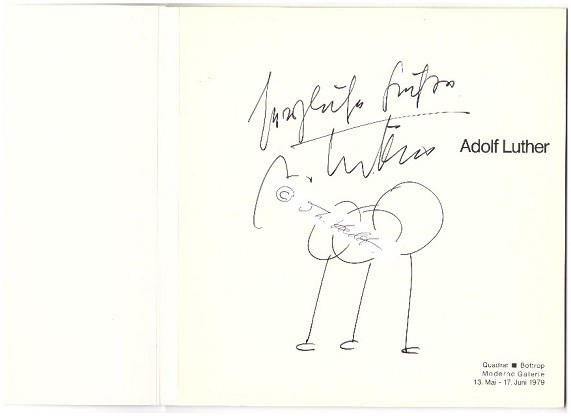 herzliche Grüße
A. Luther
Adolf Luther
©
Quadrat ■ Bottrop
Moderne Galerie
13. Mai - 17. Juni 1979